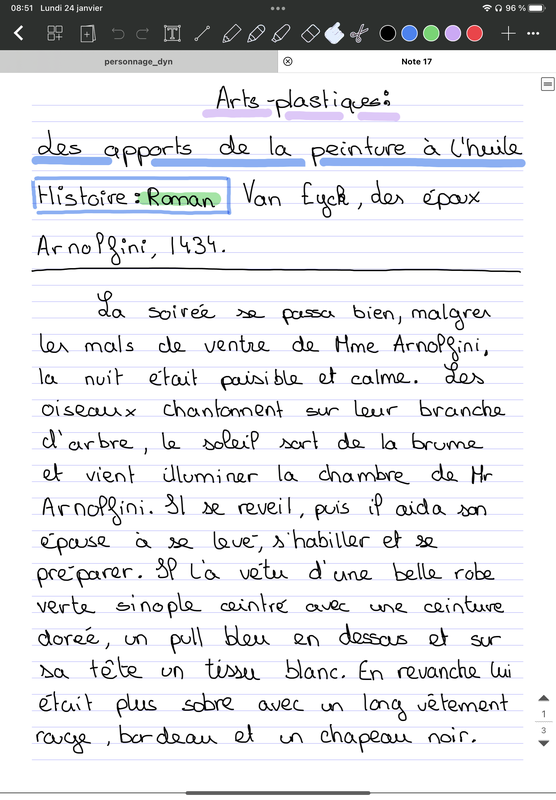 08:51 Lundi 24 janvier
96 %
personnage_dyn
Note 17
Arts-plastiques:
Les apports de la peinture à l'huile
Histoire : Roman Van Eyck, des époux
Arnolfini, 1434.
La soirée se passa bien, malgrer
les mals de ventre de Mme Arnolfini,
la nuit était paisible et calme. Les
oiseaux chantonnent sur leur branche
d'arbre, le soleil sort de la brume
et vient illuminer la chambre de Mr
Arnolfini. Il se reveil, puis il aida son
épouse à se levé, s'habiller et se
préparer. Il l'a vétu d'une belle robe
verte sinople ceintré avec une ceinture
doreé, un pull bleu en dessous et sur
sa tête un tissu blanc. En revanche lui
était plus sobre avec un long vêtement
rouge, bordeau et un chapeau noir.
1
3